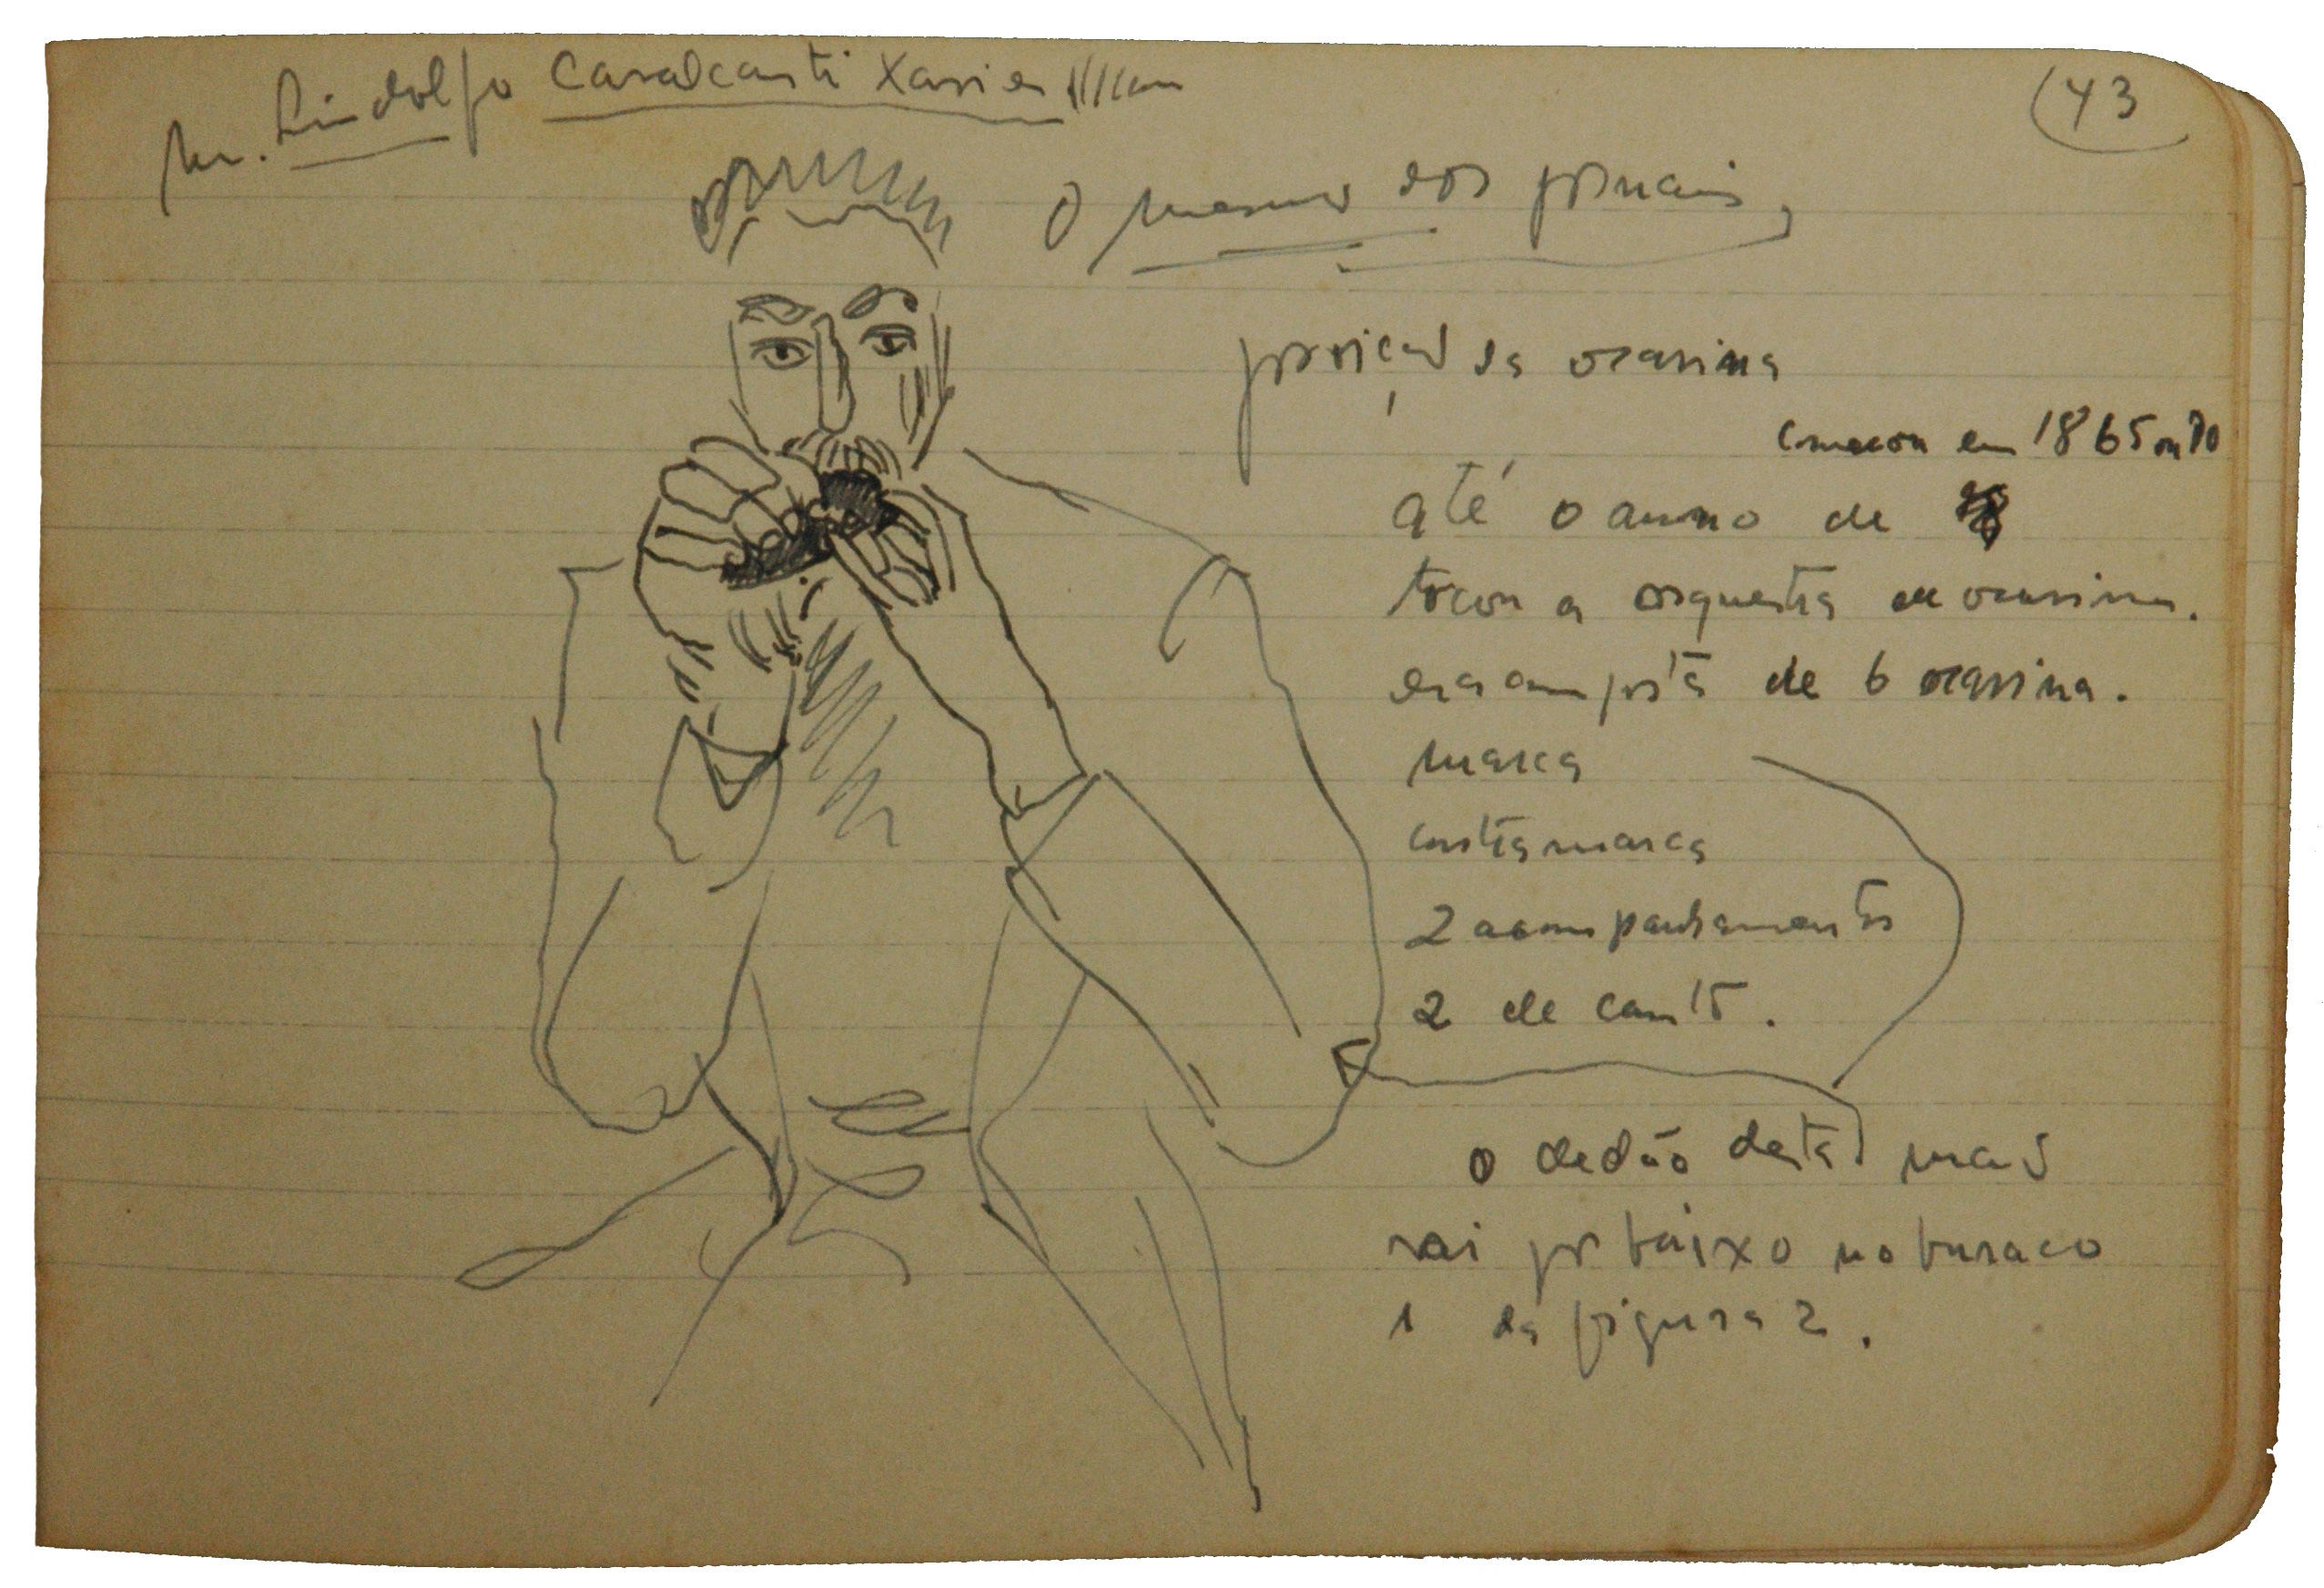 Mr. Lindolfo Cavalcanti Xavier
43
O mesmo dos jornais,
posição da ocarina
começou em 1865 ou 70
até o anno de
tocou a orquestra de ocarina.
era composta de 6 ocarina.
marca
contramarca
2 acompanhamentos
2 de canto.
o dedão desta mão
vai por baixo no buraco
1 da figura 2.